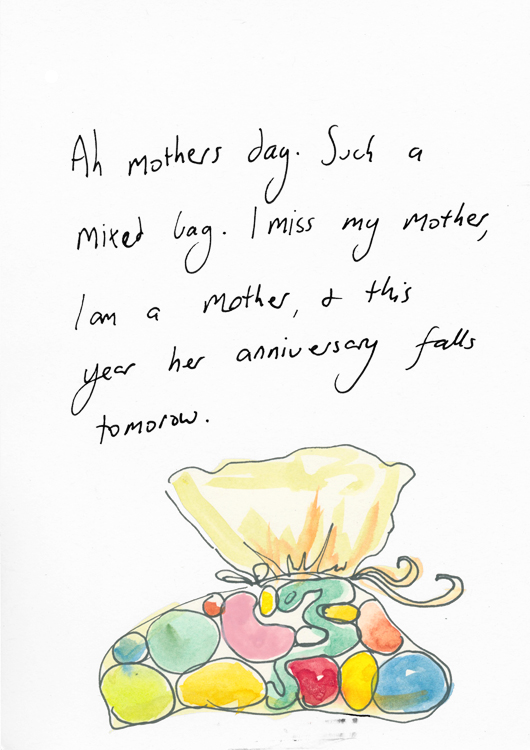 Ah mothers day. Such a
mixed bag. I miss my mother,
I am a mother, & this
year her anniversary falls
tomorow.